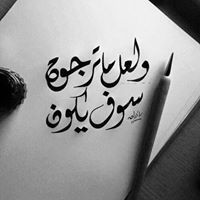 ولعل ما ترجوه
سوف يكون